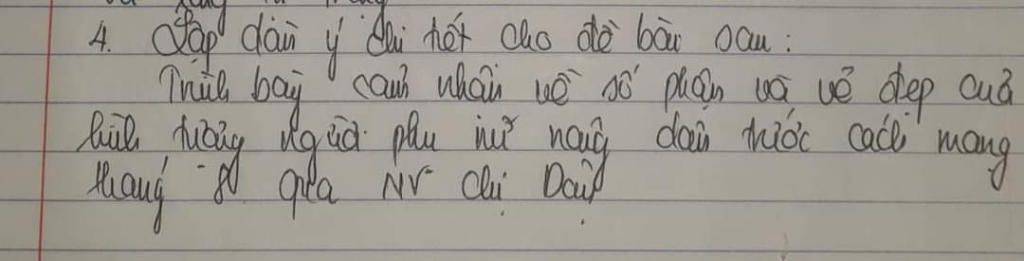 4. Lập dàn ý chi tiết cho đề bài sau:
Trình bày cảm nhận về số phận và vẻ đẹp của
hình tượng người phụ nữ nông dân trước cách mạng
tháng 8 qua NV chị Dậu